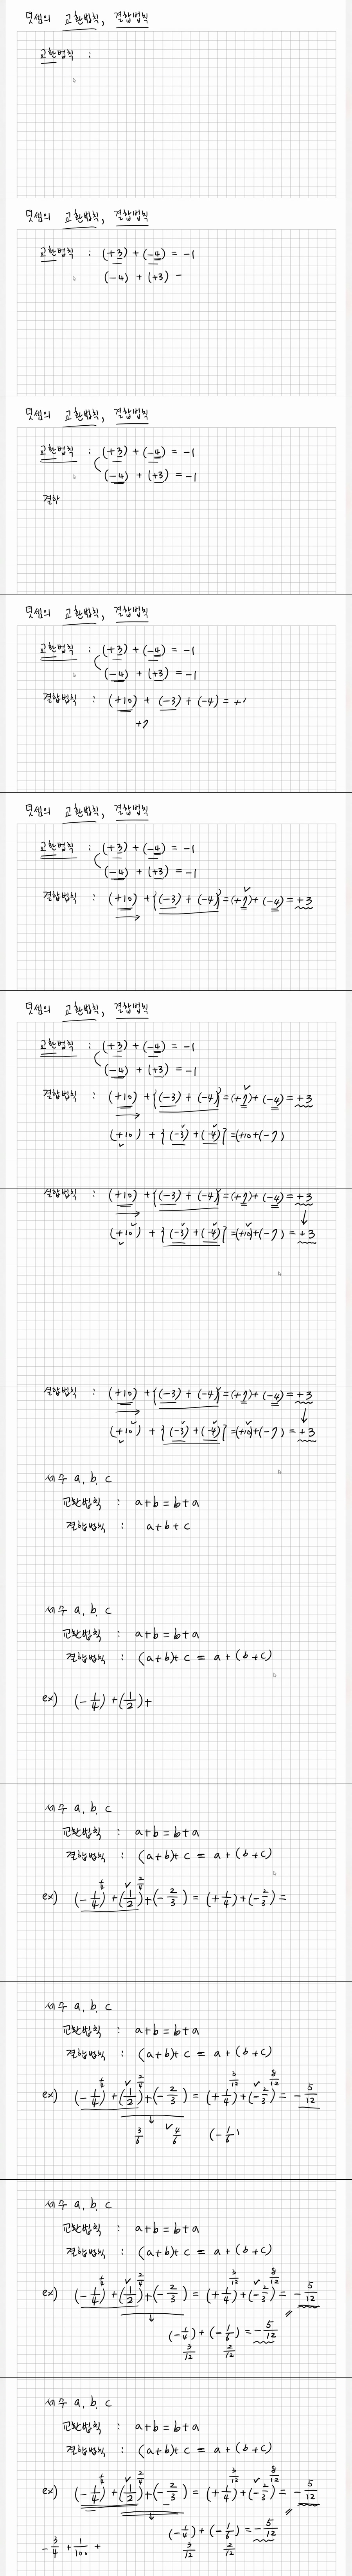 덧셈의 교환법칙, 결합법칙
교환법칙 :
덧셈의 교환법칙, 결합법칙
교환법칙 : (+3) + (-4) = -1
(-4) + (+3) =
덧셈의 교환법칙, 결합법칙
교환법칙 : (+3) + (-4) = -1
(-4) + (+3) = -1
결하
덧셈의 교환법칙, 결합법칙
교환법칙 : (+3) + (-4) = -1
(-4) + (+3) = -1
결합법칙 : (+10) + (-3) + (-4) = +
+7
덧셈의 교환법칙, 결합법칙
교환법칙 : (+3) + (-4) = -1
(-4) + (+3) = -1
결합법칙 : (+10) + {(-3) + (-4)} = (+7) + (-4) = +3
덧셈의 교환법칙, 결합법칙
교환법칙 : (+3) + (-4) = -1
(-4) + (+3) = -1
결합법칙 : (+10) + {(-3) + (-4)} = (+7) + (-4) = +3
(+10) + {(-3) + (-4)} = (+10 + (-7)
결합법칙 : (+10) + {(-3) + (-4)} = (+7) + (-4) = +3
(+10) + {(-3) + (-4)} = (+10) + (-7) = +3
결합법칙 : (+10) + {(-3) + (-4)} = (+7) + (-4) = +3
(+10) + {(-3) + (-4)} = (+10) + (-7) = +3
세수 a, b, c
교환법칙 : a+b = b+a
결합법칙 : a+b+c
세수 a, b, c
교환법칙 : a+b = b+a
결합법칙 : (a+b)+c = a+(b+c)
ex) (-1/4) + (1/2) +
세수 a, b, c
교환법칙 : a+b = b+a
결합법칙 : (a+b)+c = a+(b+c)
2/4
ex) (-1/4) + (1/2) + (-2/3) = (+1/4) + (-2/3) =
세수 a, b, c
교환법칙 : a+b = b+a
결합법칙 : (a+b)+c = a+(b+c)
2/4 3/12 8/12
ex) (-1/4) + (1/2) + (-2/3) = (+1/4) + (-2/3) = -5/12
3/6 4/6 (-1/6)
세수 a, b, c
교환법칙 : a+b = b+a
결합법칙 : (a+b)+c = a+(b+c)
2/4 3/12 8/12
ex) (-1/4) + (1/2) + (-2/3) = (+1/4) + (-2/3) = -5/12
(-1/4) + (-1/6) = -5/12
3/12 2/12
세수 a, b, c
교환법칙 : a+b = b+a
결합법칙 : (a+b)+c = a+(b+c)
2/4 3/12 8/12
ex) (-1/4) + (1/2) + (-2/3) = (+1/4) + (-2/3) = -5/12
-3/4 + 1/100 + (-1/4) + (-1/6) = -5/12
3/12 2/12